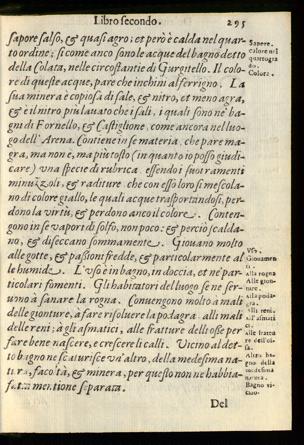 Libro secondo. 295
sapore salso, & quasi agro; et però è calda nel quar-
to ordine; si come anco sono le acque del bagno detto
della Colata, nelle circostantie di Gurgitello. Il colo-
re di queste acque, pare che inchini al ferrigno. La
sua minera è copiosa di sale, & nitro, et meno agra,
& è il nitro più lauato che i sali, i quali sono ne' ba-
gni di Fornello, & Castiglione, come ancora nel luo-
go dell'Arena. Contiene in se materia, che pare ma-
gra, ma non è, ma più tosto (in quanto io posso giudi-
care) vna specie di rubrica. essendo i suoi ramenti
minuzzoli, & raditure, che con esso loro si mescola-
no di colore giallo, le quali acque trasportandosi, per-
dono la virtù, & perdono anco il colore. Conten-
gono in se vapori di solfo, non poco: & perciò scalda-
no, & diseccano sommamente. Giouano molto
alle gotte, & passioni fredde, & particolarmente al
le humide. L'vso è in bagno, in doccia, et ne' par-
ticolari fomenti. Gli habitatori del luogo se ne ser-
uono à sanare la rogna. Conuengono molto à mali
delle gionture, à fare risoluere la podagra. alli mali
delle reni; à gli asmatici, alle fratture dell'osse per
fare bene nascere, e crescere li calli. Vicino al det-
to bagno ne scaturisce vn'altro, della medesma na-
tura, facoltà, & minera, per questo non ne habbia-
fatta mentione separata.
Del
Sapore.
calore nel
quarto gra
do.
Colore.
Vso.
Giouamen-
ti.
Alla rogna
Alle gion-
ture.
Alla poda-
gra.
Alli reni.
all'asmati
ci.
Alle fratta
re dell'os-
se.
Altro ba-
gno della
medesma
natura.
Bagno vi-
cino.